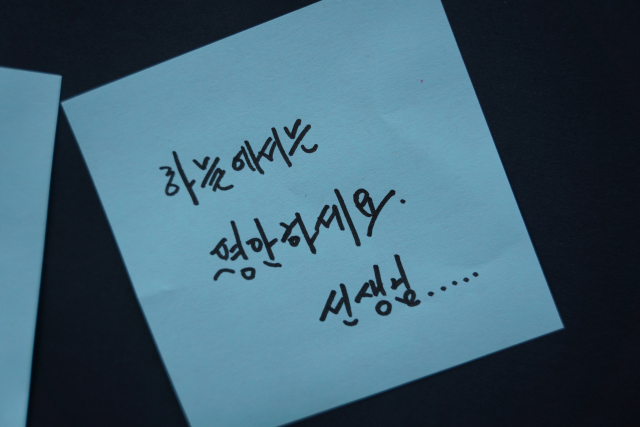 하늘에서는
평안하시요.
선생님.....